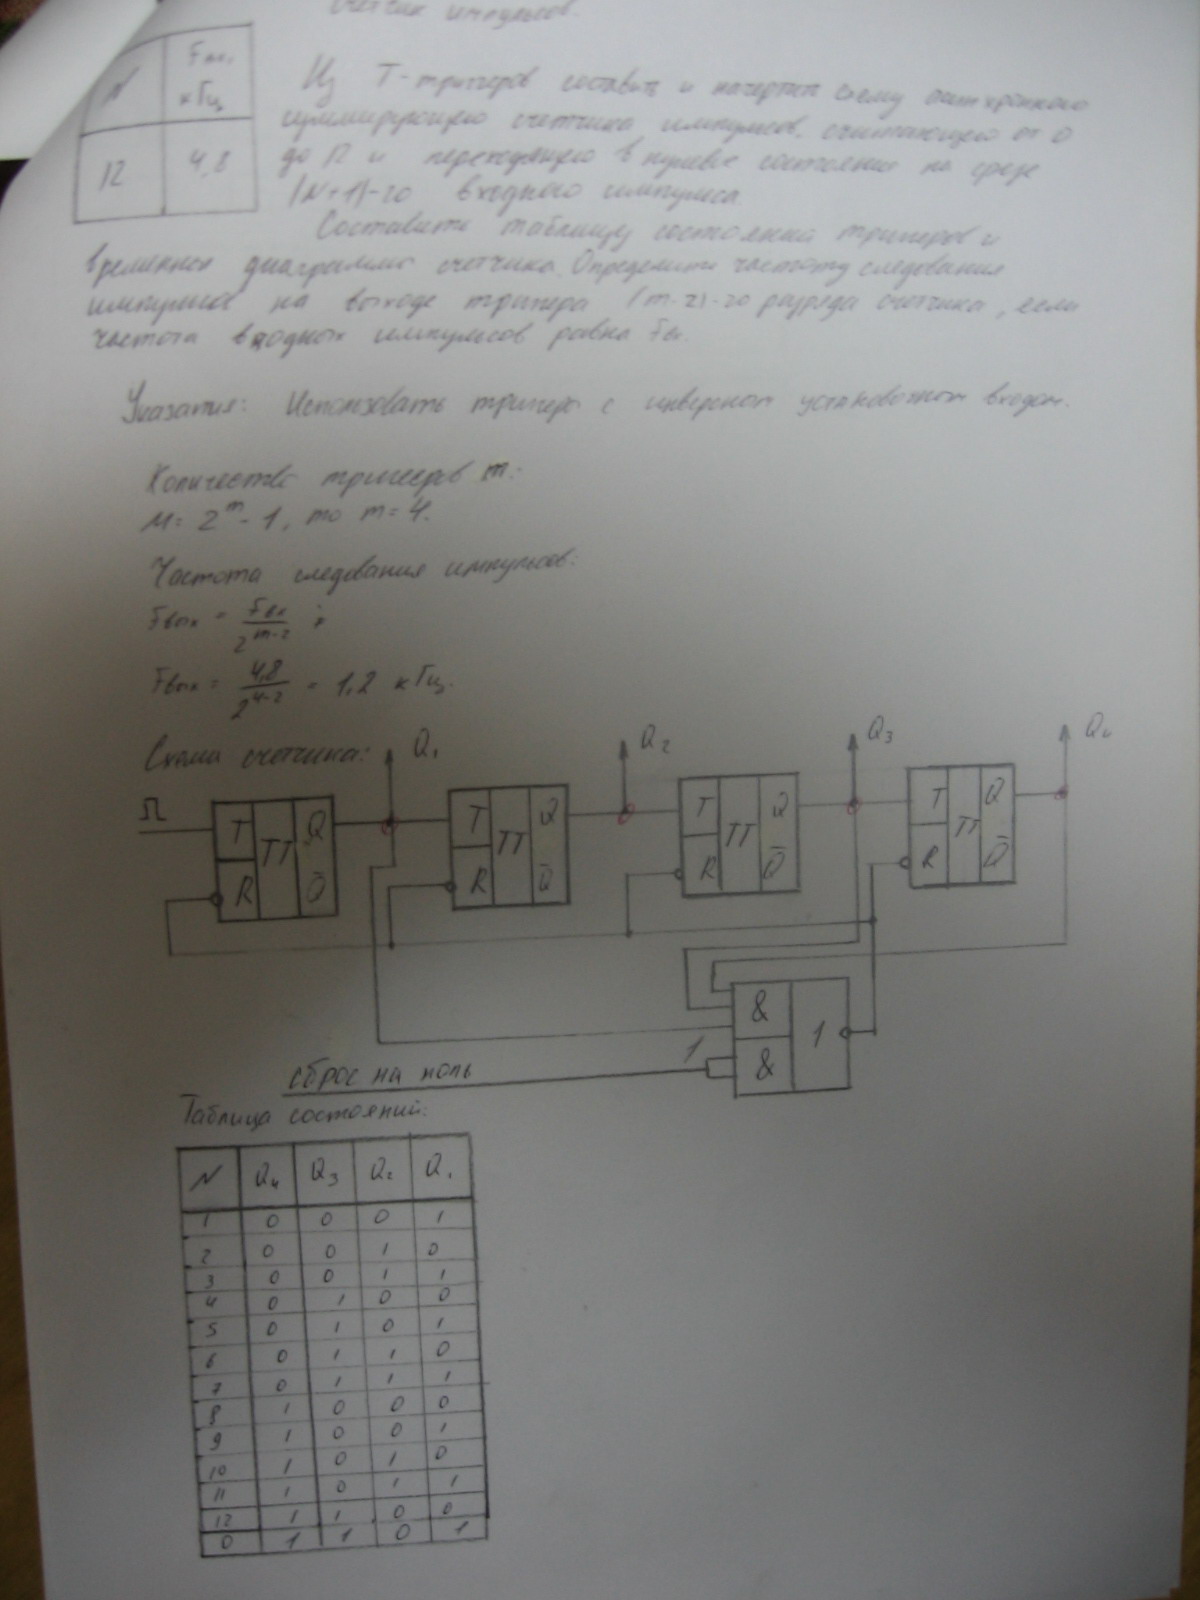 Счетчик импульсов.
N Fвх, кГц
12 4,8
Из Т-триггеров составить и начертить схему асинхронного
суммирующего счетчика импульсов, считающего от 0
до 12 и переходящего в нулевое состояние по срезе
(N+1)-го входного импульса.
Составить таблицу состояний тригеров и
временная диаграмма счетчика. Определить частоту следования
импульсов на выходе тригера (m-2)-го разряда счетчика, если
частота входных импульсов равна Fвх.
Указания: Использовать тригеры с инверсном установочном входом.
Количество тригеров m:
M= 2^m - 1, то m = 4.
Частота следования импульсов:
Fвых = Fвх / 2^(m-2) ;
Fвых = 4,8 / 2^(4-2) = 1,2 кГц.
Схема счетчика: Q1 Q2 Q3 Q4
T TT Q T TT Q T TT Q T TT Q
R Q̄ R Q̄ R Q̄ R Q̄
& 1
1 &
сброс на ноль
Таблица состояний:
N Q4 Q3 Q2 Q1
1 0 0 0 1
2 0 0 1 0
3 0 0 1 1
4 0 1 0 0
5 0 1 0 1
6 0 1 1 0
7 0 1 1 1
8 1 0 0 0
9 1 0 0 1
10 1 0 1 0
11 1 0 1 1
12 1 1 0 0
0 1 1 0 1